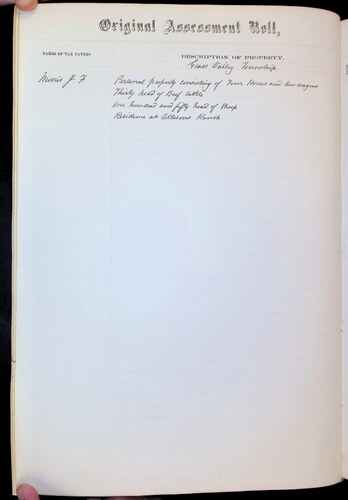 Original Assessment Roll,
NAMES OF TAX PAYERS.
DESCRIPTION OF PROPERTY.
Grass Valley Township
Morris J. F
Personal property consisting of Four Horses and two wagons
Thirty head of Beef Cattle
One hundred and fifty head of Sheep
Residence at Allisons Ranch